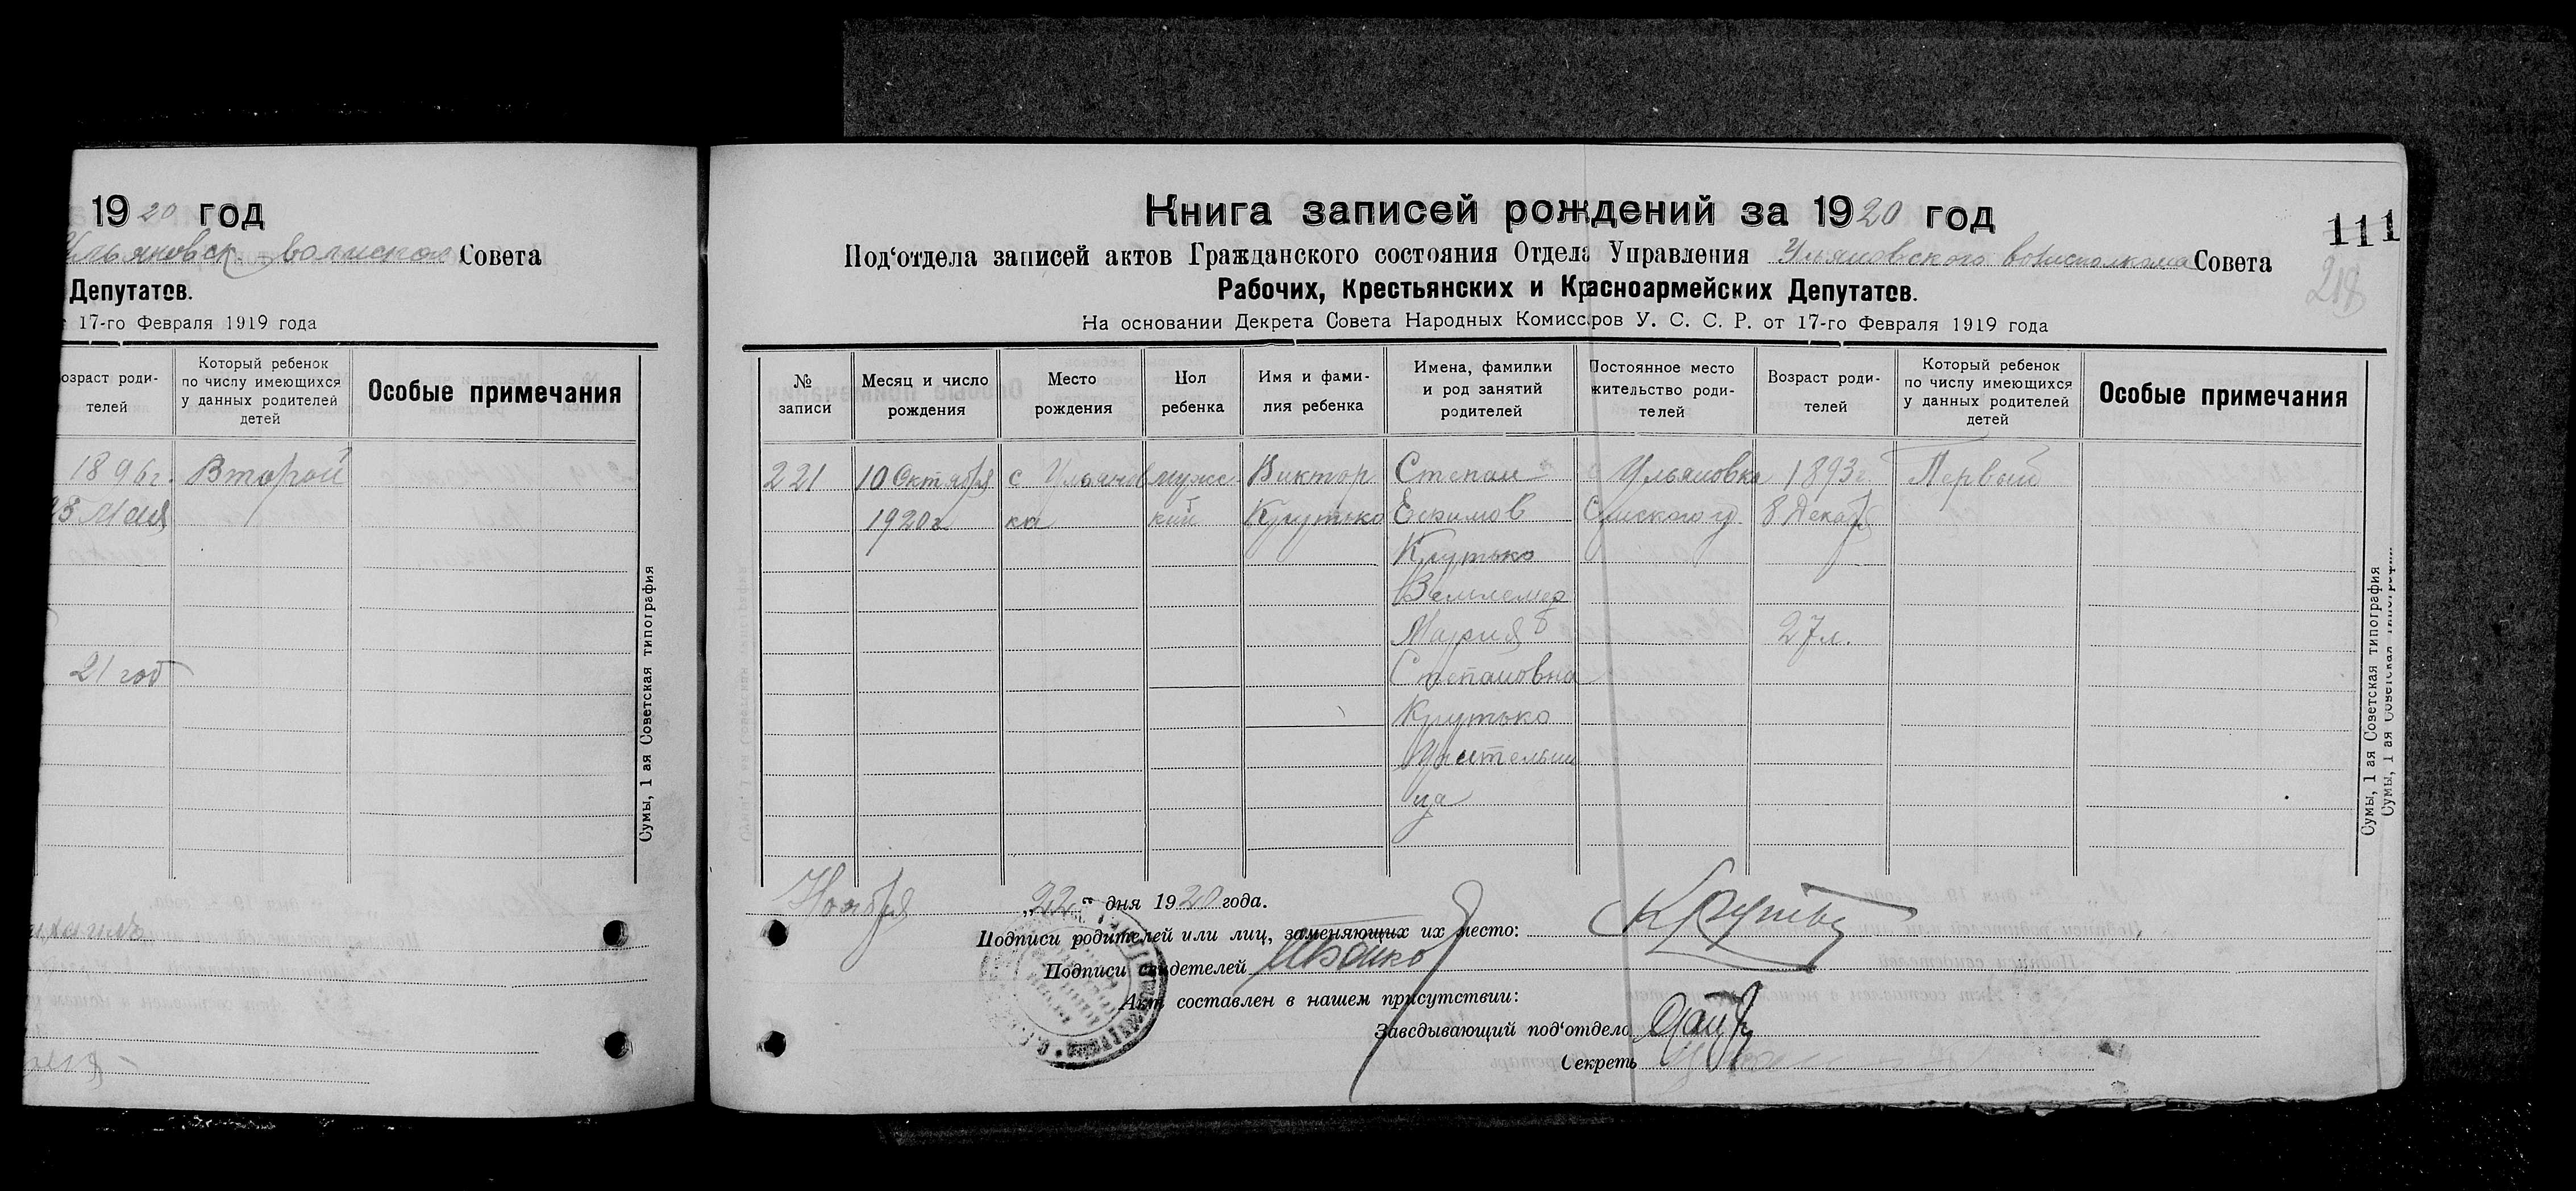 1920 год
Ульяновск. волиспол Совета
Депутатов.
17-го Февраля 1919 года
озраст роди-
телей
Который ребенок
по числу имеющихся
у данных родителей
детей
Особые примечания
1896г. Второй
Мая
21 год
Сумы, 1 ая Советская типография
Книга записей рождений за 1920 год
111
Под‘отдела записей актов Гражданского состояния Отдела Управления Ульяновского волисполкома Совета
Рабочих, Крестьянских и Красноармейских Депутатов.
На основании Декрета Совета Народных Комиссаров У. С. С. Р. от 17-го Февраля 1919 года
№
записи
Месяц и число
рождения
Место
рождения
Пол
ребенка
Имя и фами-
лия ребенка
Имена, фамилии
и род занятий
родителей
Постоянное место
жительство роди-
телей
Возраст роди-
телей
Который ребенок
по числу имеющихся
у данных родителей
детей
Особые примечания
221 10 Октября с Ульянов мужс Виктор Степан с Ульяновка 1893г Первый
1920г ка кий Крутько Ефимов Сумского у 8 Декабр
Крутько
Землемер
Мария 27л.
Степановна
Крутько
Учительни
ца
Сумы, 1 ая Советская типография
Сумы, 1 ая Советская типография
Ноября „22“ дня 1920 года.
Подписи родителей или лиц, заменяющих их место: Крутько
Подписи свидетелей
Акт составлен в нашем присутствии:
Заведывающий под‘отдело
Секреть